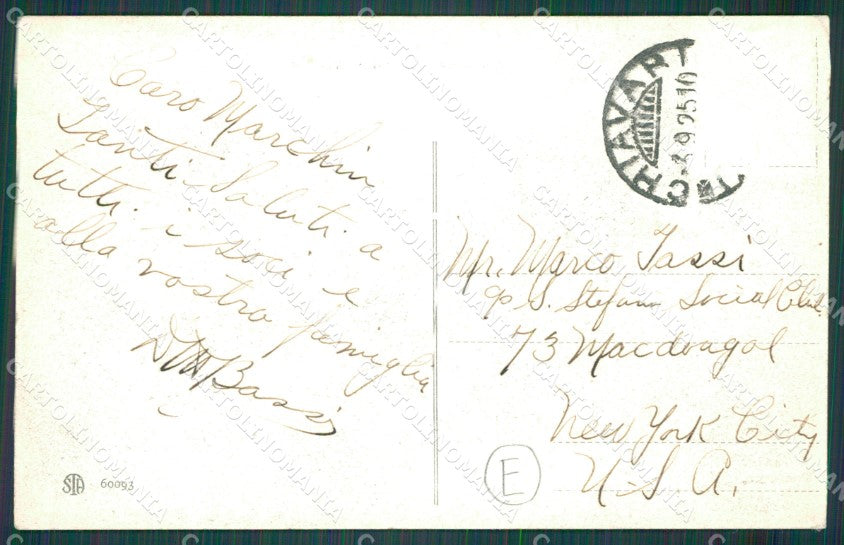 Caro Marchin
Tanti Saluti a
tutti i soci e
alla vostra famiglia
Bassi
STA 60093
CHIAVARI
3.9.25.10
Mr. Marco Tassi
c/o S. Stefano Social Club
73 Macdougal
New York City
U.S.A.
E
CARTOLINOMANIA